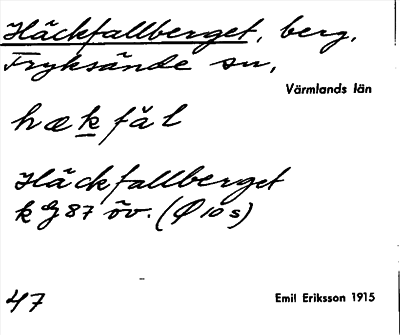 Häckfallberget, berg,
Fryksände sn,
Värmlands län
hækfăl
Häckfallberget
k G 87 öv. (Ø 10 s)
47
Emil Eriksson 1915